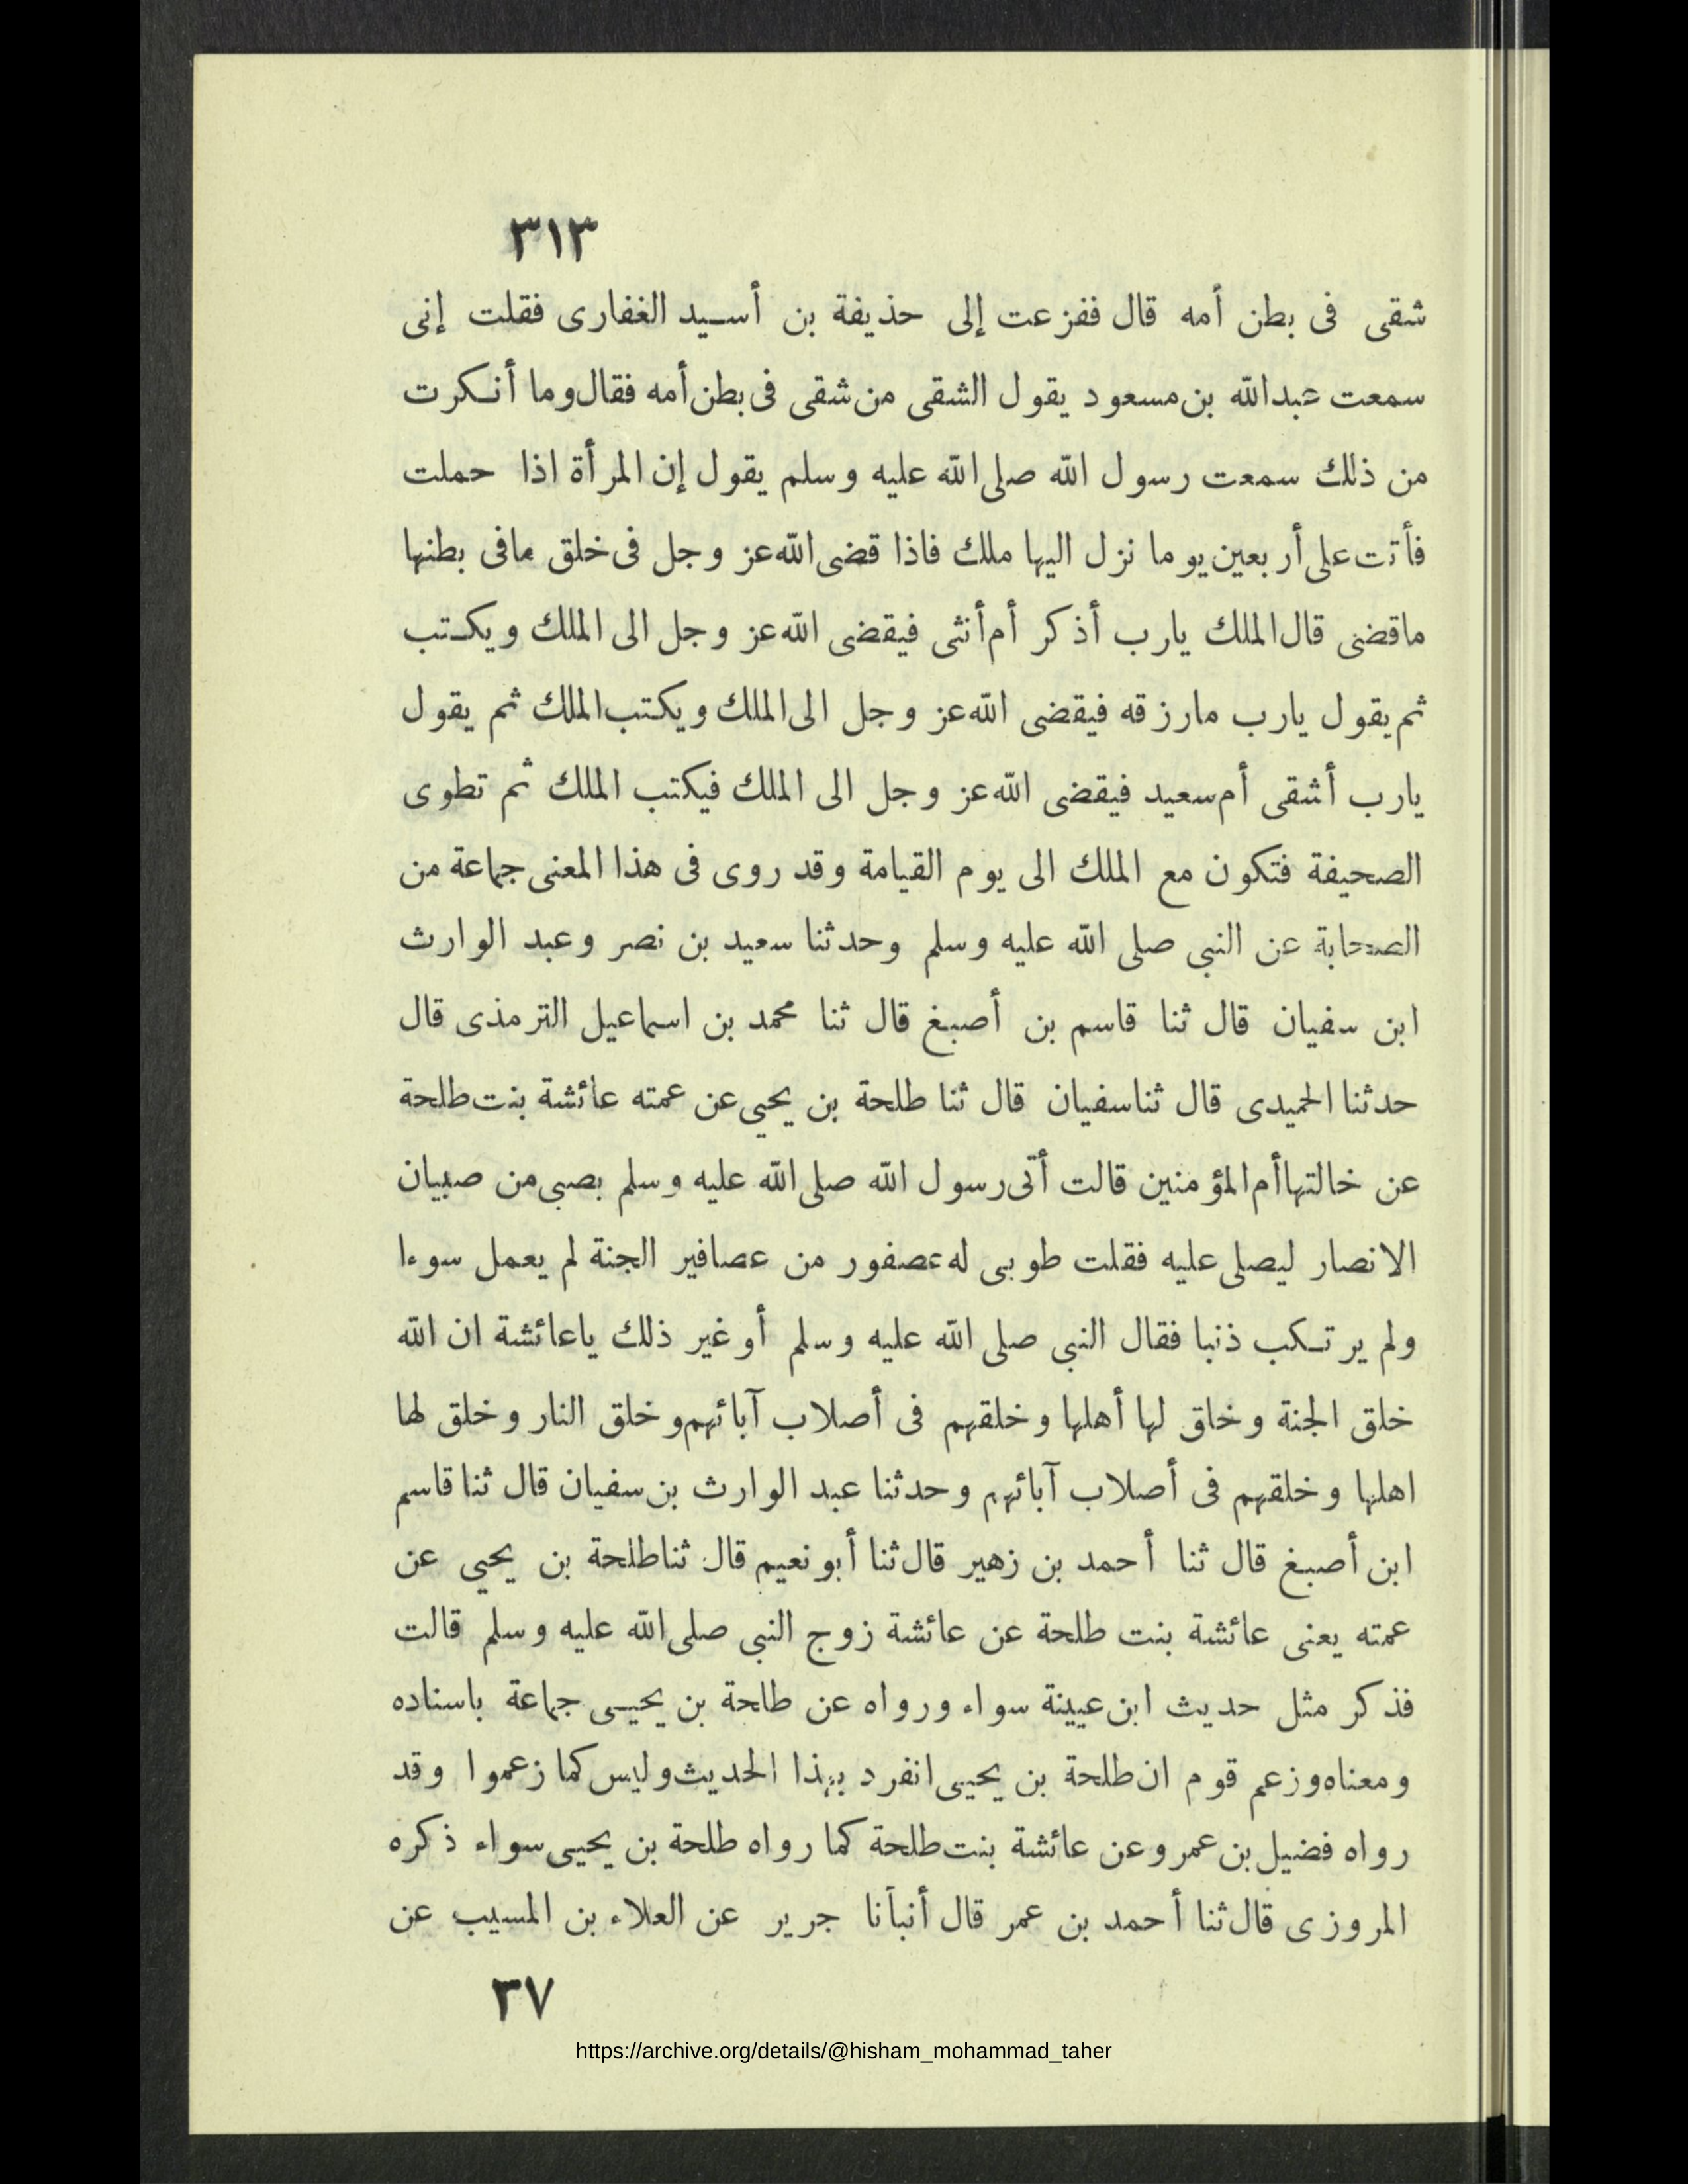 ٣١٣
شقى فى بطن أمه قال ففزعت إلى حذيفة بن أسيد الغفارى فقلت إنى
سمعت عبدالله بن مسعود يقول الشقى من شقى فى بطن أمه فقال وما أنكرت
من ذلك سمعت رسول الله صلى الله عليه وسلم يقول إن المرأة اذا حملت
فأتت على أربعين يوما نزل اليها ملك فاذا قضى الله عز وجل فى خلق مافى بطنها
ماقضى قال الملك يارب أذكر أم أنثى فيقضى الله عز وجل الى الملك ويكتب
ثم يقول يارب مارزقه فيقضى الله عز وجل الى الملك ويكتب الملك ثم يقول
يارب أشقى أم سعيد فيقضى الله عز وجل الى الملك فيكتب الملك ثم تطوى
الصحيفة فتكون مع الملك الى يوم القيامة وقد روى فى هذا المعنى جماعة من
الصحابة عن النبى صلى الله عليه وسلم وحدثنا سعيد بن نصر وعبد الوارث
ابن سفيان قال ثنا قاسم بن أصبغ قال ثنا محمد بن اسماعيل الترمذى قال
حدثنا الحميدى قال ثنا سفيان قال ثنا طلحة بن يحيى عن عمته عائشة بنت طلحة
عن خالتها أم المؤمنين قالت أتى رسول الله صلى الله عليه وسلم بصبى من صبيان
الانصار ليصلى عليه فقلت طوبى له عصفور من عصافير الجنة لم يعمل سوءا
ولم يرتكب ذنبا فقال النبى صلى الله عليه وسلم أو غير ذلك ياعائشة ان الله
خلق الجنة وخلق لها أهلها وخلقهم فى أصلاب آبائهم وخلق النار وخلق لها
اهلها وخلقهم فى أصلاب آبائهم وحدثنا عبد الوارث بن سفيان قال ثنا قاسم
ابن أصبغ قال ثنا أحمد بن زهير قال ثنا أبو نعيم قال ثنا طلحة بن يحيى عن
عمته يعنى عائشة بنت طلحة عن عائشة زوج النبى صلى الله عليه وسلم قالت
فذكر مثل حديث ابن عيينة سواء ورواه عن طلحة بن يحيى جماعة باسناده
ومعناه وزعم قوم ان طلحة بن يحيى انفرد بهذا الحديث وليس كما زعموا وقد
رواه فضيل بن عمرو عن عائشة بنت طلحة كما رواه طلحة بن يحيى سواء ذكره
المروزى قال ثنا أحمد بن عمر قال أنبأنا جرير عن العلاء بن المسيب عن
٣٧
https://archive.org/details/@hisham_mohammad_taher